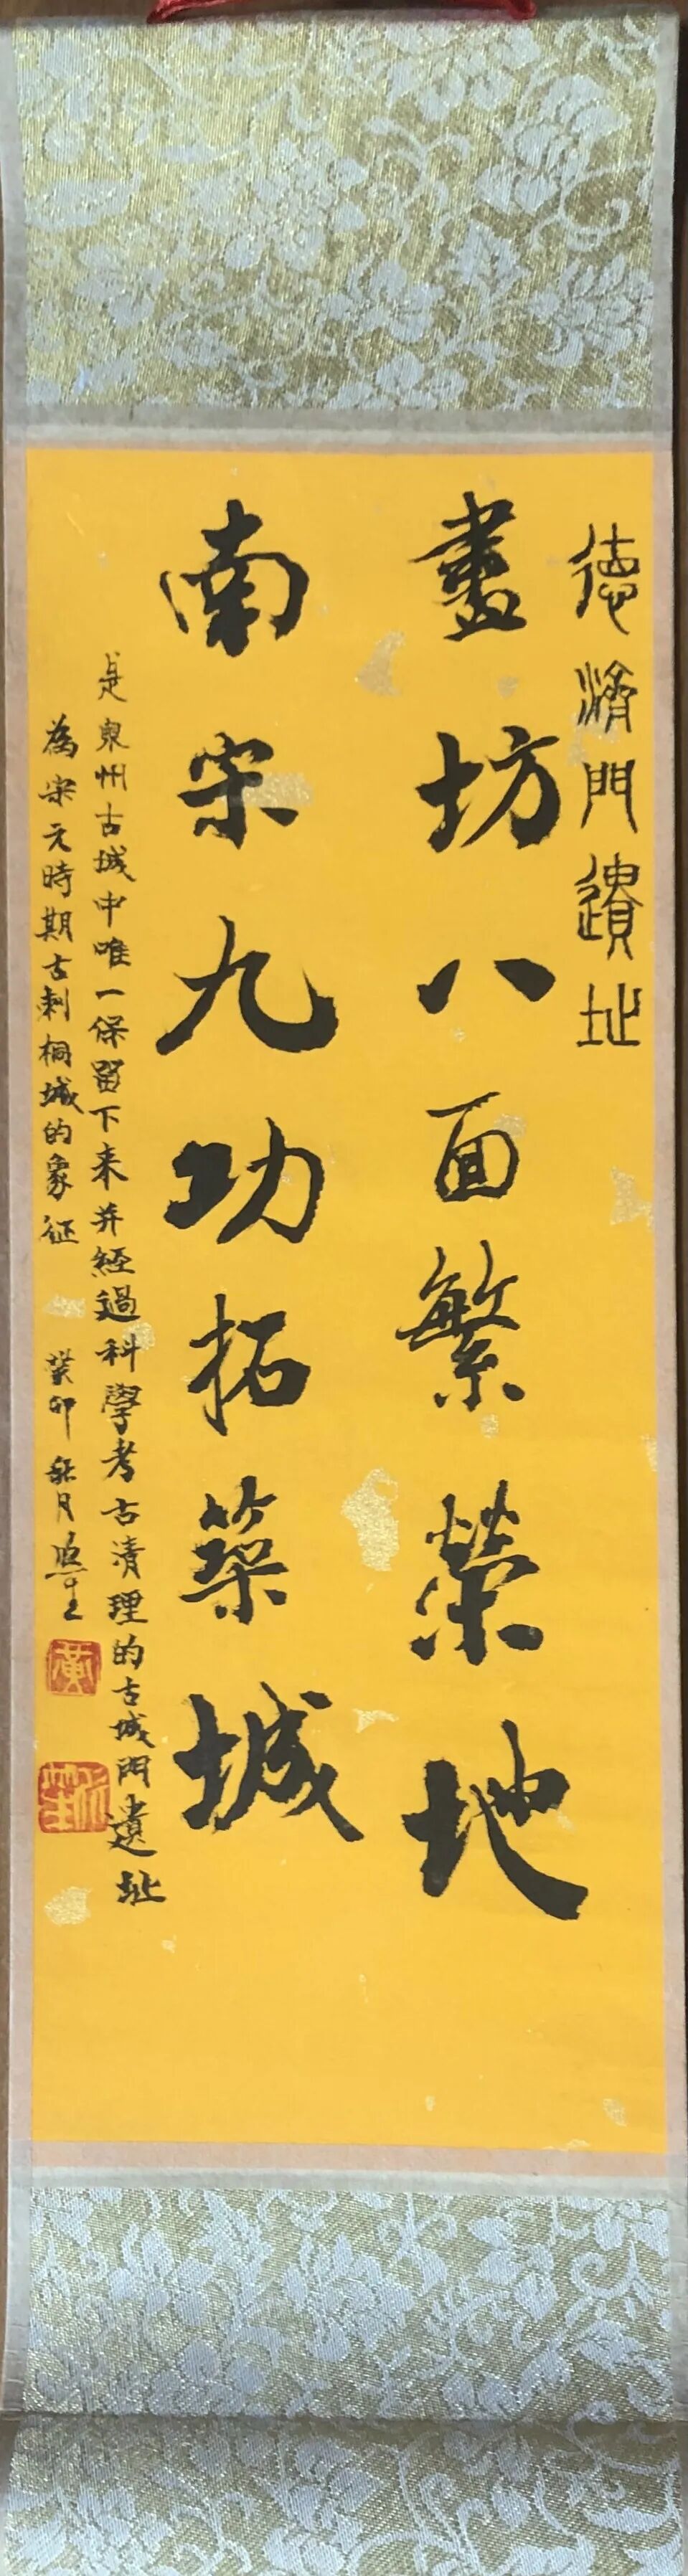 德濟門遺址
畫坊八面繁榮地
南宋九功拓築城
是泉州古城中唯一保留下来并經過科學考古清理的古城門遺址
為宋元時期古刺桐城的象征
癸卯秋月
黄